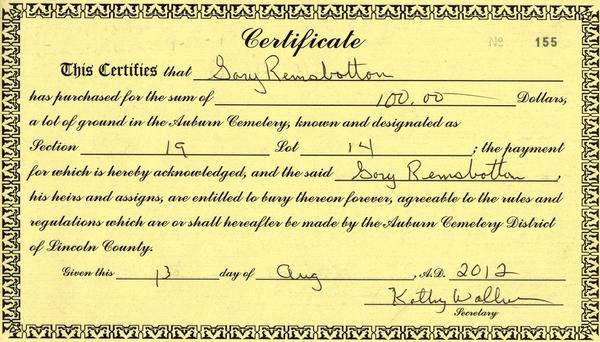 Certificate
No 155
This Certifies that Gary Remsbotton
has purchased for the sum of 100.00 Dollars,
a lot of ground in the Auburn Cemetery, known and designated as
Section 19 Lot 14 ; the payment
for which is hereby acknowledged, and the said Gary Remsbotton,
his heirs and assigns, are entitled to bury thereon forever, agreeable to the rules and
regulations which are or shall hereafter be made by the Auburn Cemetery District
of Lincoln County.
Given this 13 day of Aug , A.D. 2012
Kathy
Secretary